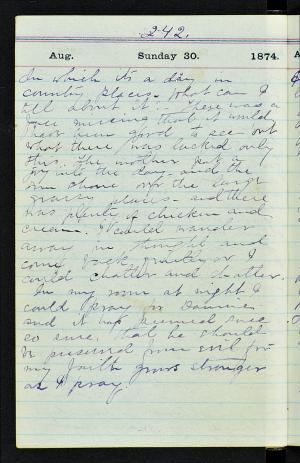 242.
Aug. Sunday 30. 1874.
In which it's a day in
country places. What can I
tell about it. There was a
face missing that it would
have been good to see but
what there was lacked only
this. The mother put
joy into the day and the
sun shone over the large
grassy places and there
was plenty of chicken and
cream. I could wander
away in thought and
come back quietly or I
could chatter and chatter.
In my room at night I
could pray for
and it has seemed since
so sure that he should
be preserved from evil for
my faith grows stronger
as I pray.